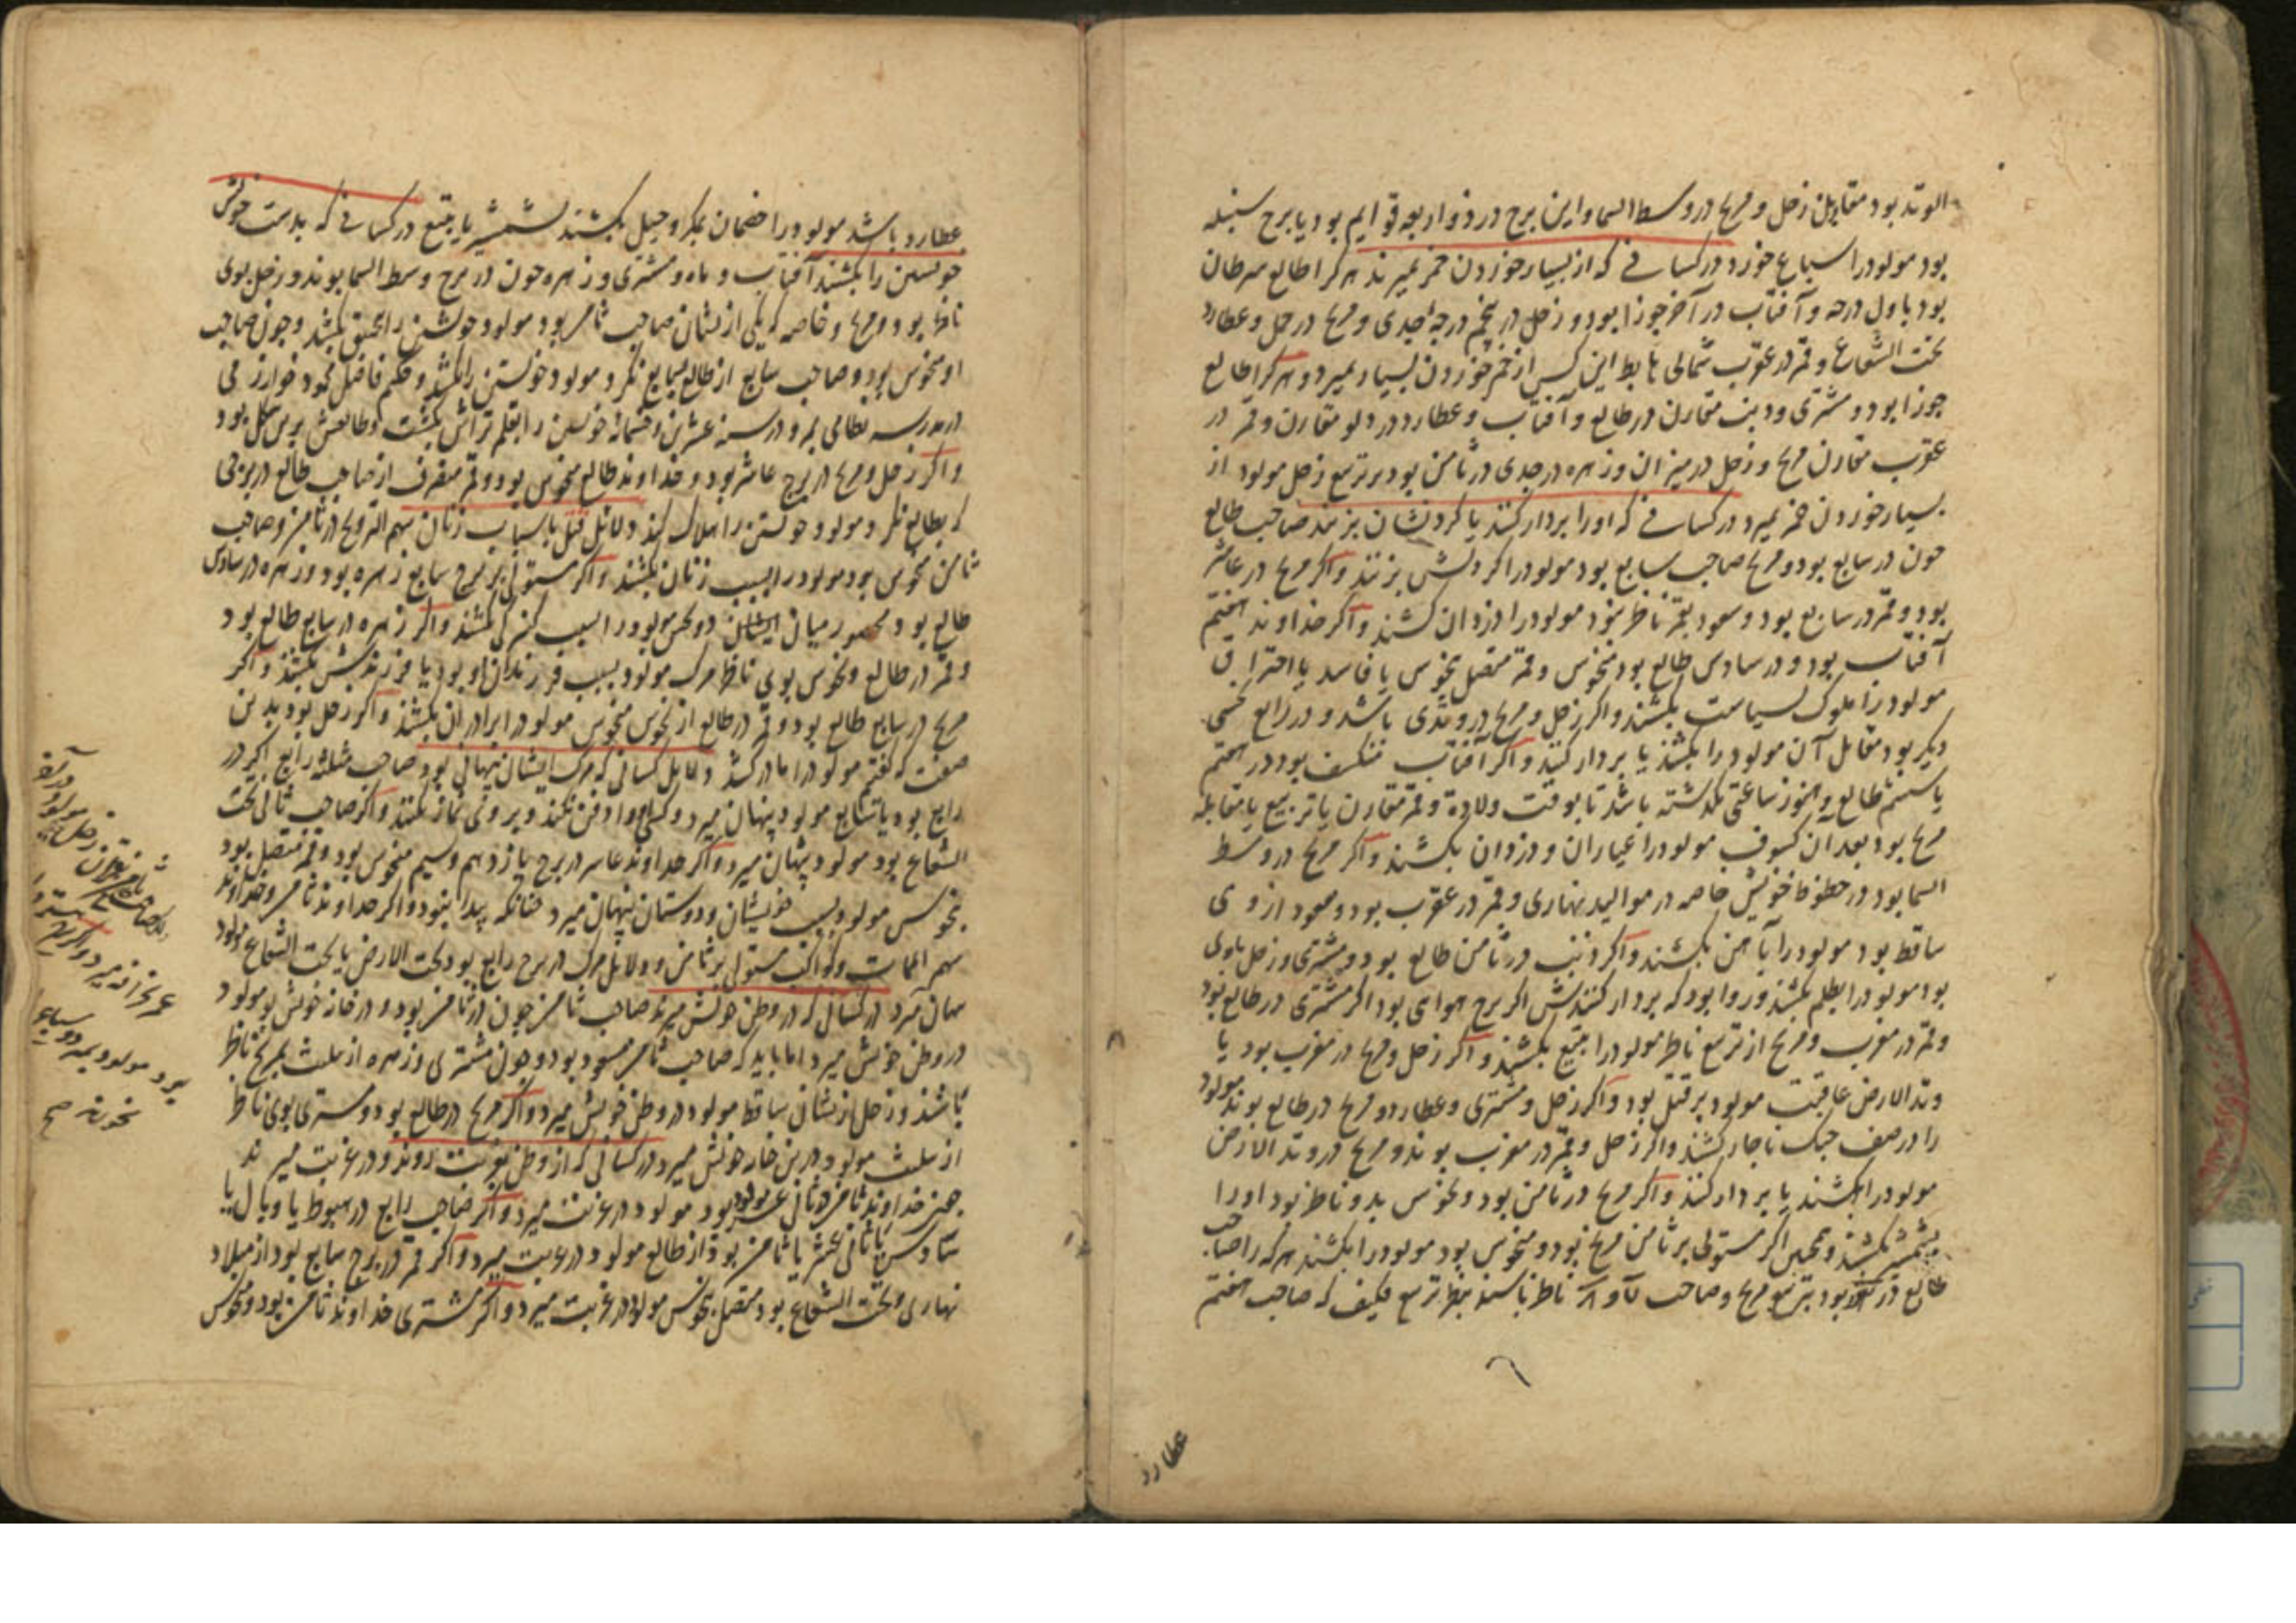 الوتد بود مقابل زحل و مریخ در وسط السما و این برج در ذو اربعه قوایم بود یا برج سنبله
بود مولود را سباع خورد در کسانی که از بسیار خوردن خمر میرند هر کرا طالع سرطان
بود باول درجه و آفتاب در آخر جوزا بود و زحل در پنجم درجهٔ جدی و مریخ در حمل و عطارد
تحت الشعاع و قمر در عقرب شمالی هابط این کس از خمر خوردن بسیار بمیرد و هر کرا طالع
جوزا بود و مشتری و ذنب مقارن در طالع و آفتاب و عطارد در دلو مقارن و قمر در
عقرب مقارن مریخ و زحل در میزان و زهره در جدی در ثامن بود بر تربیع زحل مولود از
بسیار خوردن خمر بمیرد در کسانی که او را بردار کنند یا کردنشان بزنند صاحب طالع
چون در سابع بود و مریخ صاحب سابع بود مولود را کردنش بزنند و اکر مریخ در عاشر
بود و قمر در سابع بود و سعود بقمر ناظر نبود مولود را دزدان کشند و اکر خداوند هفتم
آفتاب بود و در سادس طالع بود منحوس و قمر متصل بنحوس یا فاسد یا احتراق
مولود را ملوک بسیاست بکشند و اکر زحل و مریخ در وتدی باشد و در رابع نحسی
دیکر بود مقابل آن مولود را بکشند یا بردار کنند و اکر آفتاب منکسف بود در هفتم
یا هشتم طالع و هنوز ساعتی نکذشته باشد تا بوقت ولادة و قمر مقارن یا تربیع یا مقابله
مریخ بود بعد آن کسوف مولود را عیاران و دزدان بکشند و اکر مریخ در وسط
السما بود در حظوظ خویش خاصه در موالید نهاری و قمر در عقرب بود و سعود از وی
ساقط بود مولود را بآهن بکشند و اکر ذنب در ثامن طالع بود و مشتری و زحل باوی
بود مولود را بظلم بکشند و روا بود که بردار کنندش اکر برج هوای بود اکر مشتری در طالع بود
و قمر در مغرب و مریخ از تربیع ناظر مولود را بتیغ بکشند و اکر زحل و مریخ در مغرب بود یا
وتد الارض عاقبت مولود بر قتل بود و اکر زحل و مشتری و عطارد و مریخ در طالع بوند مولود
را در صف جنک ناچار کشند و اکر زحل و قمر در مغرب بوند و مریخ در وتد الارض
مولود را بکشند یا بردار کنند و اکر مریخ در ثامن بود و نحوس بدو ناظر بود او را
بشمشیر بکشند و همچنین اکر مستولی بر ثامن مریخ بود و منحوس بود مولود را بکشند هر که را صاحب
طالع در بود بتربیع مریخ و صاحب ناظر باشند بنظر تربیع فکیف که صاحب هفتم
عطارد
عطارد باشد مولود را خصمان بمکر و حیل بکشند بشمشیر یا بتیغ در کسانی که بدست خویش
خویشتن را بکشند آفتاب و ماه و مشتری و زهره چون در برج وسط السما بوند و زحل بوی
ناظر بود و مریخ و خاصه که یکی ازیشان صاحب ثامن بود مولود خویشتن را بخنق بکشد و چون صاحب
او منحوس بود و صاحب سابع از طالع بسابع نکرد مولود خویشتن را بکشد و حکیم فاضل محمود خوارزمی
در مدرسه نظامی بمرو در سنه عشرین و خمسمائة خویشتن را بقلم تراش بکشت و طالعش برین شکل بود
و اکر زحل و مریخ در برج عاشر بود و خداوند طالع منحوس بود و قمر منصرف از صاحب طالع در برجی
که بطالع نکرد مولود خویشتن را هلاک کند دلائل قتل باسباب زنان سهم التزویج در ثامن و صاحب
ثامن منحوس بود مولود را بسبب زنان بکشند و اکر مستولی بر برج سابع زهره بود و زهره در سادس
طالع بود و محصور میان دو نحس مولود را بسبب کنیزکی بکشند و اکر زهره در سابع طالع بود
و قمر در طالع و نحوس بوی ناظر مرک مولود بسبب فرزندان او بود یا فرزندش بکشند و اکر
مریخ در سابع طالع بود و قمر در طالع از نحوس منحوس مولود را برادران بکشند و اکر زحل بود بدین
صفت که کفتم مولود را مادر کشد دلایل کسانی که مرک ایشان پنهانی بود صاحب مثلثه رابع اکر در
رابع بود یا سابع مولود پنهان میرد و کسی او را دفن نکند و بر وی نماز نکنند و اکر صاحب ثانی تحت
الشعاع بود مولود پنهان میرد و اکر خداوند عاشر در برج یازدهم و سیم منحوس بود و قمر متصل بود
بنحوس مولود بسبب خویشان و دوستان پنهان میرد چنانکه پیدا نبود و اکر خداوند ثامن و خداوند
سهم الممات و کواکب مستولی بر ثامن و دلائل مرک در برج رابع بود تحت الارض یا تحت الشعاع مولود
پنهان میرد در کسانی که در وطن خویش میرند صاحب ثامن چون در ثامن بود و در خانه خویش بود مولود
در وطن خویش میرد اما باید که صاحب ثامن مسعود بود و چون مشتری و زهره از تثلیث بمریخ ناظر
باشند و زحل ازیشان ساقط مولود در وطن خویش میرد و اکر مریخ در طالع بود و مشتری بوی ناظر
از تثلیث مولود در بن خان خویش میرد در کسانی که از وطن بغربت روند و در غربت میرند
چون خداوند ثامن در ثانی عشر بود مولود در غربت میرد و اکر صاحب رابع در هبوط یا وبال یا
سادس یا ثانی عشر یا ثامن بود از طالع مولود در غربت میرد و اکر قمر در برج سابع بود از میلاد
نهاری و تحت الشعاع بود متصل بنحوس مولود در غربت میرد و اکر مشتری خداوند ثامن بود و نحوس